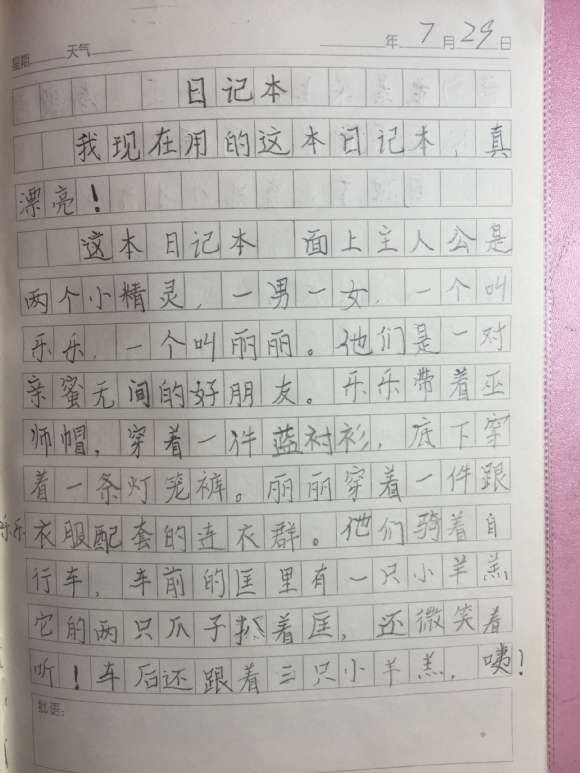 星期 天气 年 7 月 29 日
日记本
我现在用的这本日记本,真
漂亮!
这本日记本 面上主人公是
两个小精灵,一男一女,一个叫
乐乐,一个叫丽丽。他们是一对
亲蜜无间的好朋友。乐乐带着巫
师帽,穿着一件蓝衬衫,底下穿
着一条灯笼裤。丽丽穿着一件跟
乐乐衣服配套的连衣群。他们骑着自
行车,车前的匡里有一只小羊羔
它的两只爪子扒着匡,还微笑着
听!车后还跟着三只小羊羔,咦?
批语: